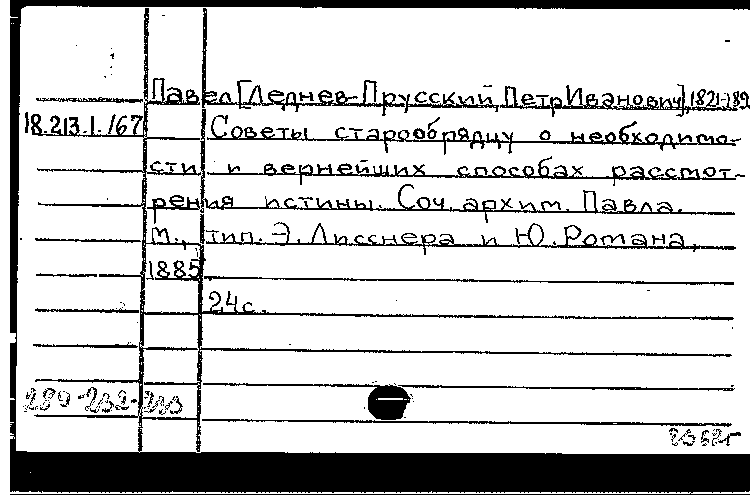 Павел [Леднев-Прусский, Петр Иванович], 1821-189
18.213.1.167 Советы старообрядцу о необходимо-
сти и вернейших способах рассмот-
рения истины. Соч. архим. Павла.
М., тип. Э. Лисснера и Ю. Романа,
1885
24с.